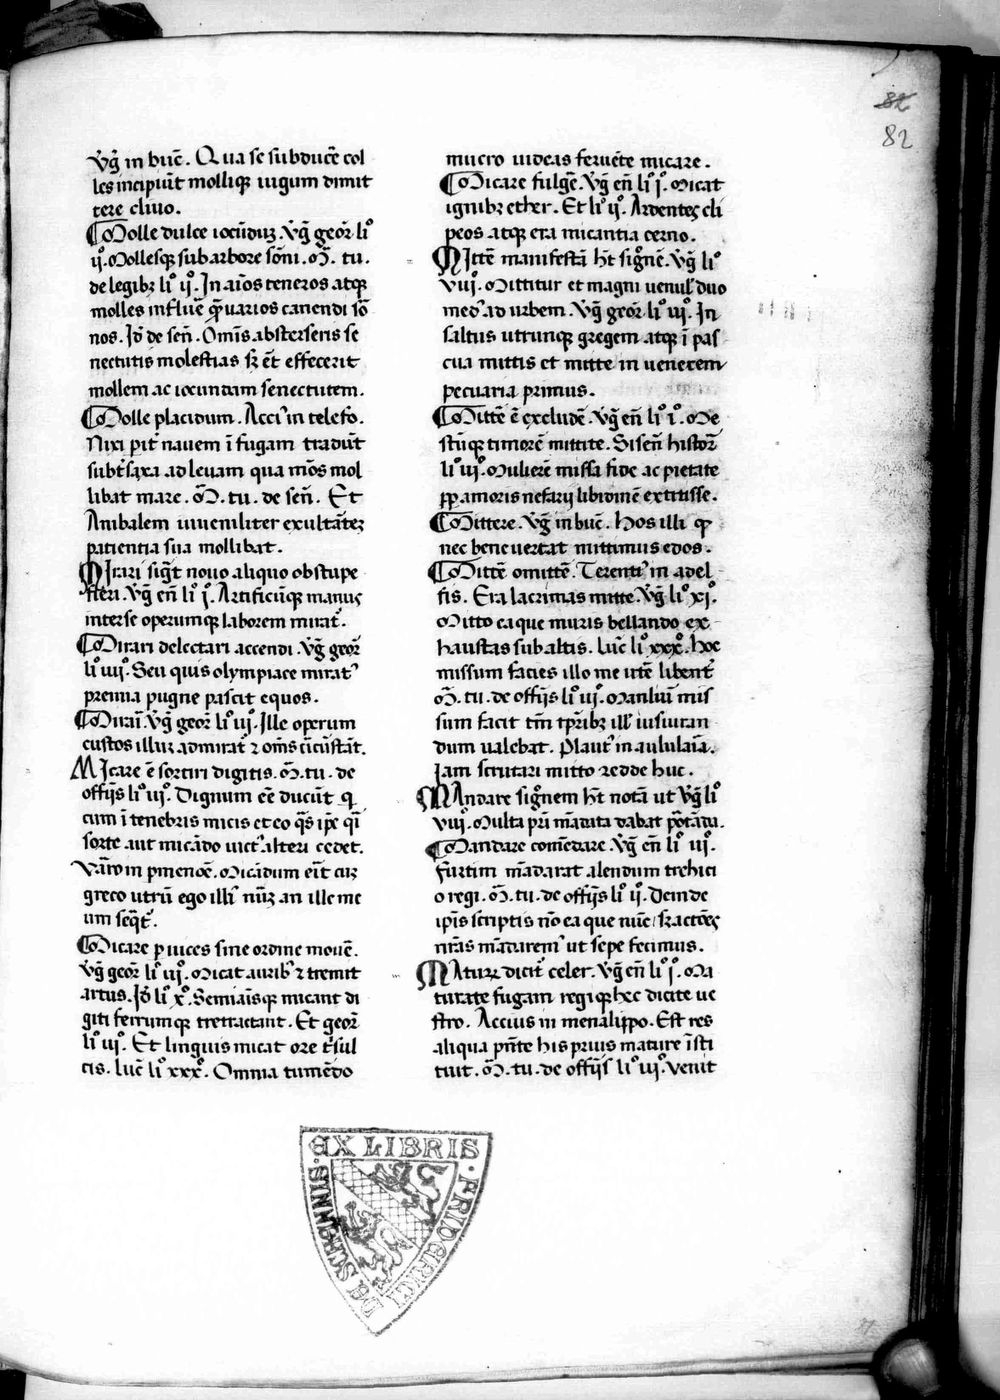 82
82
v̾g̾ in buc̄. Qua se subduce᷑ col
les incipiūt mollique iugum dimit
tere cliuo.
¶Molle dulce iocūduʒ. v̾g̾ geor̄. liº
ij. Mollesqȝ sub arbore sōni. M̄. tu.
de legibȝ liº ij. In aīos teneros atqȝ
molles influē qͣ̄ uarios canendi so
nos. Id̄ de seń. Om̄is abstersens se
nectutis molestias sȝ ēt effecerit
mollem ac iocundam senectutem.
¶Molle placidum. Acci᷒ in telefo.
Nixi pit̄ nauem ī fugam tradūt
subt̄ saxa ad leuam qua mōs mol
libat mare. M̄. tu. de seń. Et
Anibalem iuueniliter exultātez
patientia sua mollibat.
Mirari sigt̄ nouo aliquo obstupe
steri. v̾g̾ eń liº j. Artificūqȝ manus
inter se operumqȝ laborem mirat᷒.
¶Mirari delectari accendi. v̾g̾ geor̄
liº iij. Seu quis olympiace mirat᷒
premia pugne pascit equos.
¶Mirari. v̾g̾ geor̄ liº iij. Ille operum
custos illuʒ admirat᷒ ⁊ om̄s circūstāt.
Micare ē sortiri digitis. M̄. tu. de
offijs liº iij. Dignum eē ducūt q̄
cum ī tenebris micis et eo q̄s ip̄e q̄i
sorte aut micādo uict᷒ alteri cedet.
Varro in pmenoē. Micādum eīt cuʒ
greco utrū ego illi᷒ nūʒ an ille me
um seqt᷒.
¶Micare p uices sine ordine mouē.
v̾g̾ geor̄ liº iij. Micat aurib᷒ ⁊ tremit
artus. Id̄ liº x. Semiaīsqȝ micant di
giti ferrumqȝ tretractant. Et geor̄
liº iij. Et linguis micat ore t̄sul
cis. Luc̄ liº xxxº. Omnia tumēdo
mucro uideas feruēte micare.
¶Micare fulgē. v̾g̾ eń liº j. Micat
ignibȝ ether. Et liº ij. Ardentes cli
peos atqȝ era micantia cerno.
Mittē manifestā ht̄ signē. v̾g̾ liº
viijº. Mittitur et magni uenul᷒ duo
med᷒ ad urbem. v̾g̾ geor̄ liº iij. In
saltus utrunqȝ gregem atqȝ ī pas
cua mittis et mitte in uenerem
pecuaria primus.
¶Mittē ē excludē. v̾g̾ eń liº j. Me
stūqȝ timorē mittite. Siseń histor̄
liº iij. Mulierē missa fide ac pietate
ꝓp amoris nefarij libidinē extitisse.
¶Mittere. v̾g̾ in buc̄. Hos illi qȝ
nec bene uertat mittimus edos.
¶Mittē omittē. Terenti᷒ in adel
fis. Era lacrimas mitte. v̾g̾ liº xj.
Mitto ea que muris bellando ex
haustas sub altis. Luc̄ liº xxxº. hoc
missum facies illo me utēt᷒ libent̄
M̄. tu. de offijs liº iij. Manliū mis
sum facit tm̄ tp̄ribȝ ill᷒ iusiuran
dum ualebat. Plaut᷒ in aulularia.
Jam scrutari mitto redde huc.
Mandare signem ht̄ notā ut v̾g̾ liº
viijº. Multa pr̄i mādata dabat portāda.
¶Mandare comēdare. v̾g̾ eń liº iij.
furtim mādarat alendum trehici
o regi. M̄. tu. de offijs liº ij. Deinde
ip̄is scriptis nō ea que nūc sȝ actōes
nr̄as mādarem᷒ ut sepe fecimus.
Mature dicit᷒ celer. v̾g̾ eń liº j. Ma
turate fugam regiqȝ hec dicite ue
stro. Accius in menalippo. Est res
aliqua pn̄te his prius mature īsti
tuit. M̄. tu. de offijs liº iij. venit
EX LIBRIS · FRIDERICI DE SCHENNIS ·